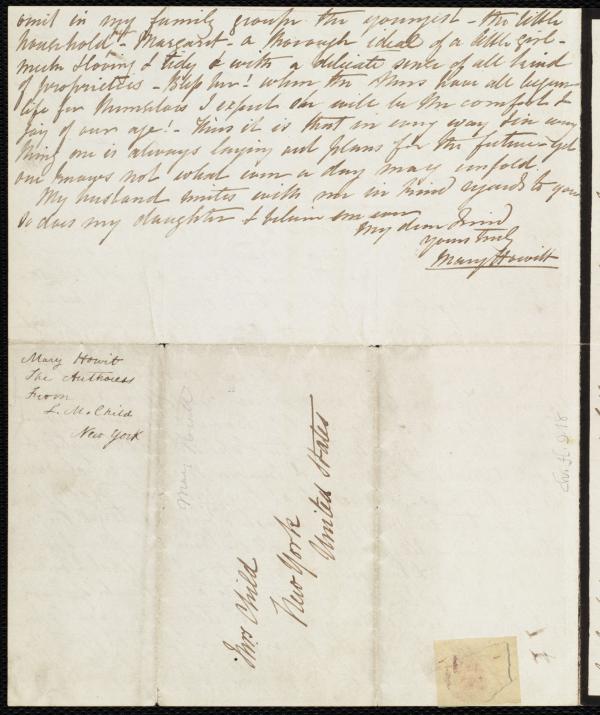 omit in my family groups the youngest – the little
household – Margaret – a thorough ideal of a little girl –
meek & loving & tidy & with a delicate sense of all kind
of proprieties – Bless her! when the others have all begun
life for themselves I expect she will be the comfort &
joy of our age! – Thus it is that in every way & in every
thing one is always laying out plans for the future – yet
one knows not what even a day may unfold.
My husband unites with me in kind regards to you
So does my daughter & believe me ever
My dear friend
yours truly
Mary Howitt
Mary Howit
The Authoress
From
L. M. Child
New York
Mary Howitt
Mrs Child
New York
United States